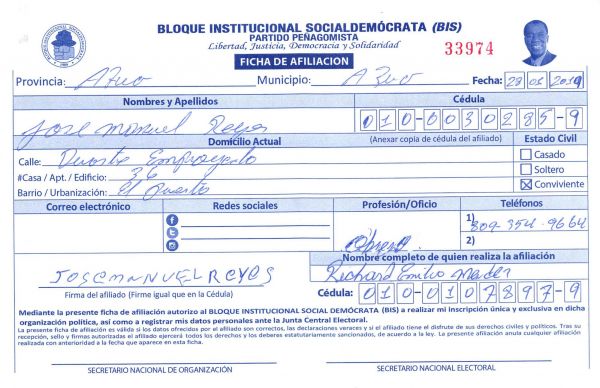 BLOQUE INSTITUCIONAL SOCIALDEMÓCRATA (BIS)
PARTIDO PEÑAGOMISTA
Libertad, Justicia, Democracia y Solidaridad
33974
FICHA DE AFILIACION
Provincia: Azua Municipio: Azua Fecha: 28 01 2019
Nombres y Apellidos Cédula
Jose Manuel Reyes 010-0030285-9
Domicilio Actual (Anexar copia de cédula del afiliado) Estado Civil
Calle: Duarte Casado
#Casa / Apt. / Edificio: 36 Soltero
Barrio / Urbanización: El Puerto Conviviente
Correo electrónico Redes sociales Profesión/Oficio Teléfonos
1) 809-354-9664
Obrero 2)
Nombre completo de quien realiza la afiliación
JOSEMANUELREYES Richard Emilio
Firma del afiliado (Firme igual que en la Cédula) Cédula: 010-0107897-9
Mediante la presente ficha de afiliación autorizo al BLOQUE INSTITUCIONAL SOCIAL DEMÓCRATA (BIS) a realizar mi inscripción única y exclusiva en dicha
organización política, así como a registrar mis datos personales ante la Junta Central Electoral.
La presente ficha de afiliación es válida si los datos ofrecidos por el afiliado son correctos, las declaraciones veraces y si el afiliado tiene el disfrute de sus derechos civiles y políticos. Tras su
recepción, sello y firmas autorizadas el afiliado ejercerá todos los derechos y los deberes estatutariamente sancionados, de acuerdo a la ley. La presente afiliación anula cualquier afiliación
realizada con anterioridad a la ficha que aparece en esta ficha.
SECRETARIO NACIONAL DE ORGANIZACIÓN SECRETARIO NACIONAL ELECTORAL